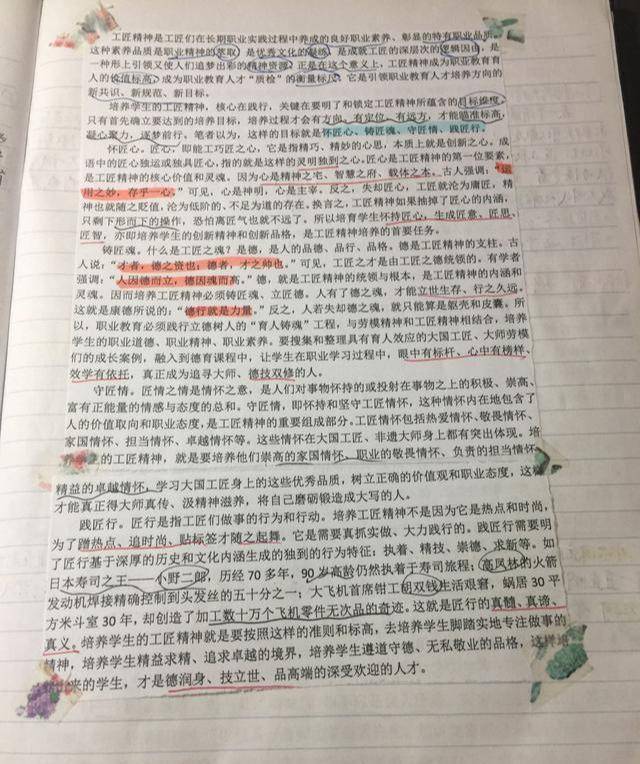 工匠精神是工匠们在长期职业实践过程中养成的良好职业素养、彰显的特有职业品质。
这种素养品质是职业精神的萃取、是优秀文化的凝练、是成就工匠的深层次的逻辑因由，是
一种形上引领又使人们追梦出彩的精神资源，正是在这个意义上，工匠精神成为职业教育育
人的价值标高，成为职业教育人才“质检”的衡量标尺，它是引领职业教育人才培养方向的
新共识、新规范、新目标。
培养学生的工匠精神，核心在践行，关键在要明了和锁定工匠精神所蕴含的目标维度，
只有首先确立要达到的培养目标，培养过程才会有方向、有定位、有远方，才能瞄准标高，
凝心聚力，逐梦前行。笔者以为，这样的目标就是怀匠心、铸匠魂、守匠情、践匠行。
怀匠心。匠心，即能工巧匠之心，它是指精巧、精妙的心思，本质上就是创新之心。成
语中的匠心独运或独具匠心，指的就是这样的灵明独到之心。匠心是工匠精神的第一位要素，
是工匠精神的核心价值和灵魂。因为心是精神之宅、智慧之府、载体之本。古人强调：“运
用之妙，存乎一心。”可见，心是神明，心是主宰。反之，失却匠心，工匠就沦为庸匠，精
神也就随之贬值，沦为低阶的、不足为道的存在。换言之，工匠精神如果抽掉了匠心的内涵，
只剩下形而下的操作，恐怕离匠气也就不远了。所以培育学生怀持匠心，生成匠意、匠思、
匠智，亦即培养学生的创新精神和创新品格，是工匠精神培养的首要任务。
铸匠魂。什么是工匠之魂？是德，是人的品德、品行、品格。德是工匠精神的支柱。古
人说：“才者，德之资也；德者，才之帅也。”可见，工匠之才是由工匠之德统领的。有学者
强调：“人因德而立，德因魂而高。”德，就是工匠精神的统领与根本，是工匠精神的内涵和
灵魂。因而培养工匠精神必须铸匠魂、立匠德。人有了德之魂，才能立世生存、行之久远。
这就是康德所说的：“德行就是力量。”反之，人若失却德之魂，就只能算是躯壳和皮囊。所
以，职业教育必须践行立德树人的“育人铸魂”工程，与劳模精神和工匠精神相结合，培养
学生的职业道德、职业精神、职业素养。要搜集和整理具有育人效应的大国工匠、大师劳模
们的成长案例，融入到德育课程中，让学生在职业学习过程中，眼中有标杆、心中有榜样、
效学有依托，真正成为追寻大师、德技双修的人。
守匠情。匠情之情是情怀之意，是人们对事物怀持的或投射在事物之上的积极、崇高、
富有正能量的情感与态度的总和。守匠情，即怀持和坚守工匠情怀，这种情怀内在地包含了
人的价值取向和职业态度，是工匠精神的重要组成部分。工匠情怀包括热爱情怀、敬畏情怀、
家国情怀、担当情怀、卓越情怀等。这些情怀在大国工匠、非遗大师身上都有突出体现。培
的工匠精神，就是要培养他们崇高的家国情怀、职业的敬畏情怀、负责的担当情怀、
精益的卓越情怀，学习大国工匠身上的这些优秀品质，树立正确的价值观和职业态度，这
才能真正得大师真传、汲精神滋养，将自己磨砺锻造成大写的人。
践匠行。匠行是指工匠们做事的行为和行动。培养工匠精神不是因为它是热点和时尚，
为了蹭热点、追时尚、贴标签才随之起舞。它是需要真抓实做、大力践行的。践匠行需要明
了匠行基于深厚的历史和文化内涵生成的独到的行为特征：执着、精技、崇德、求新等。如
日本寿司之王——小野二郎，历经 70 多年，90 岁高龄仍然执着于寿司旅程；高凤林的火箭
发动机焊接精确控制到头发丝的五十分之一；大飞机首席钳工胡双钱生活艰窘，蜗居 30 平
方米斗室 30 年，却创造了加工数十万个飞机零件无次品的奇迹，这就是匠行的真髓、真谛、
真义。培养学生的工匠精神就是要按照这样的准则和标高，去培养学生脚踏实地专注做事的
精神，培养学生精益求精、追求卓越的境界，培养学生遵道守德、无私敬业的品格，这样培
来的学生，才是德润身、技立世、品高端的深受欢迎的人才。